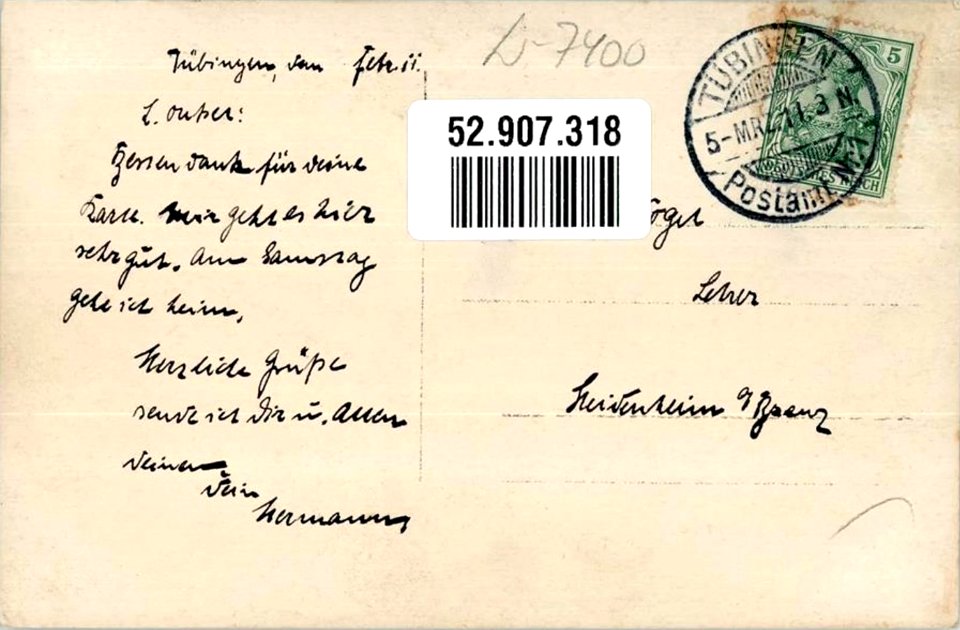 Tübingen, den Febr. 11.
L. Onkel:
Besten Dank für deine
Karte. Mir geht es hier
sehr gut. Am Samstag
gehe ich heim.
Herzliche Grüße
sende ich Dir u. Allen
Deinen
Dein
Hermann
D-7400
52.907.318
TÜBINGEN
5-MRZ.11.3 N.
Postamt Nr.1
5
Lehrer
Heidenheim a/Brenz